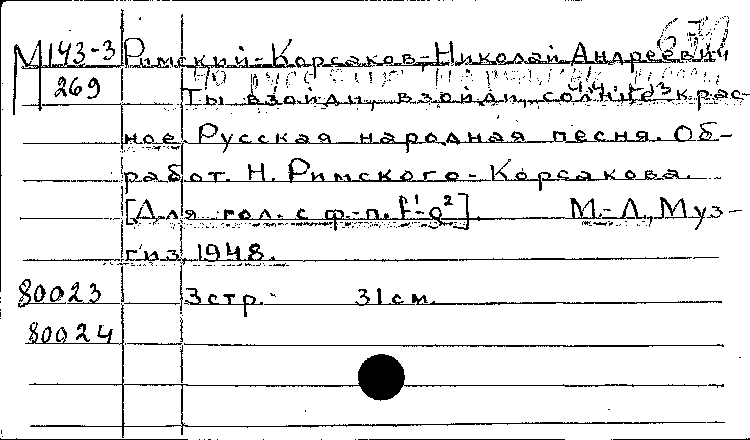 670
М 143-3 Римский-Корсаков, Николай Андреевич
269 40 русских народных песен
Ты взойди, взойди, солнце крас-
ное. Русская народная песня. Об-
работ. Н. Римского-Корсакова.
[Для гол. с ф.-п. f¹-g²]. М.-Л., Муз-
гиз, 1948.
80023 3 стр. 31 см.
80024